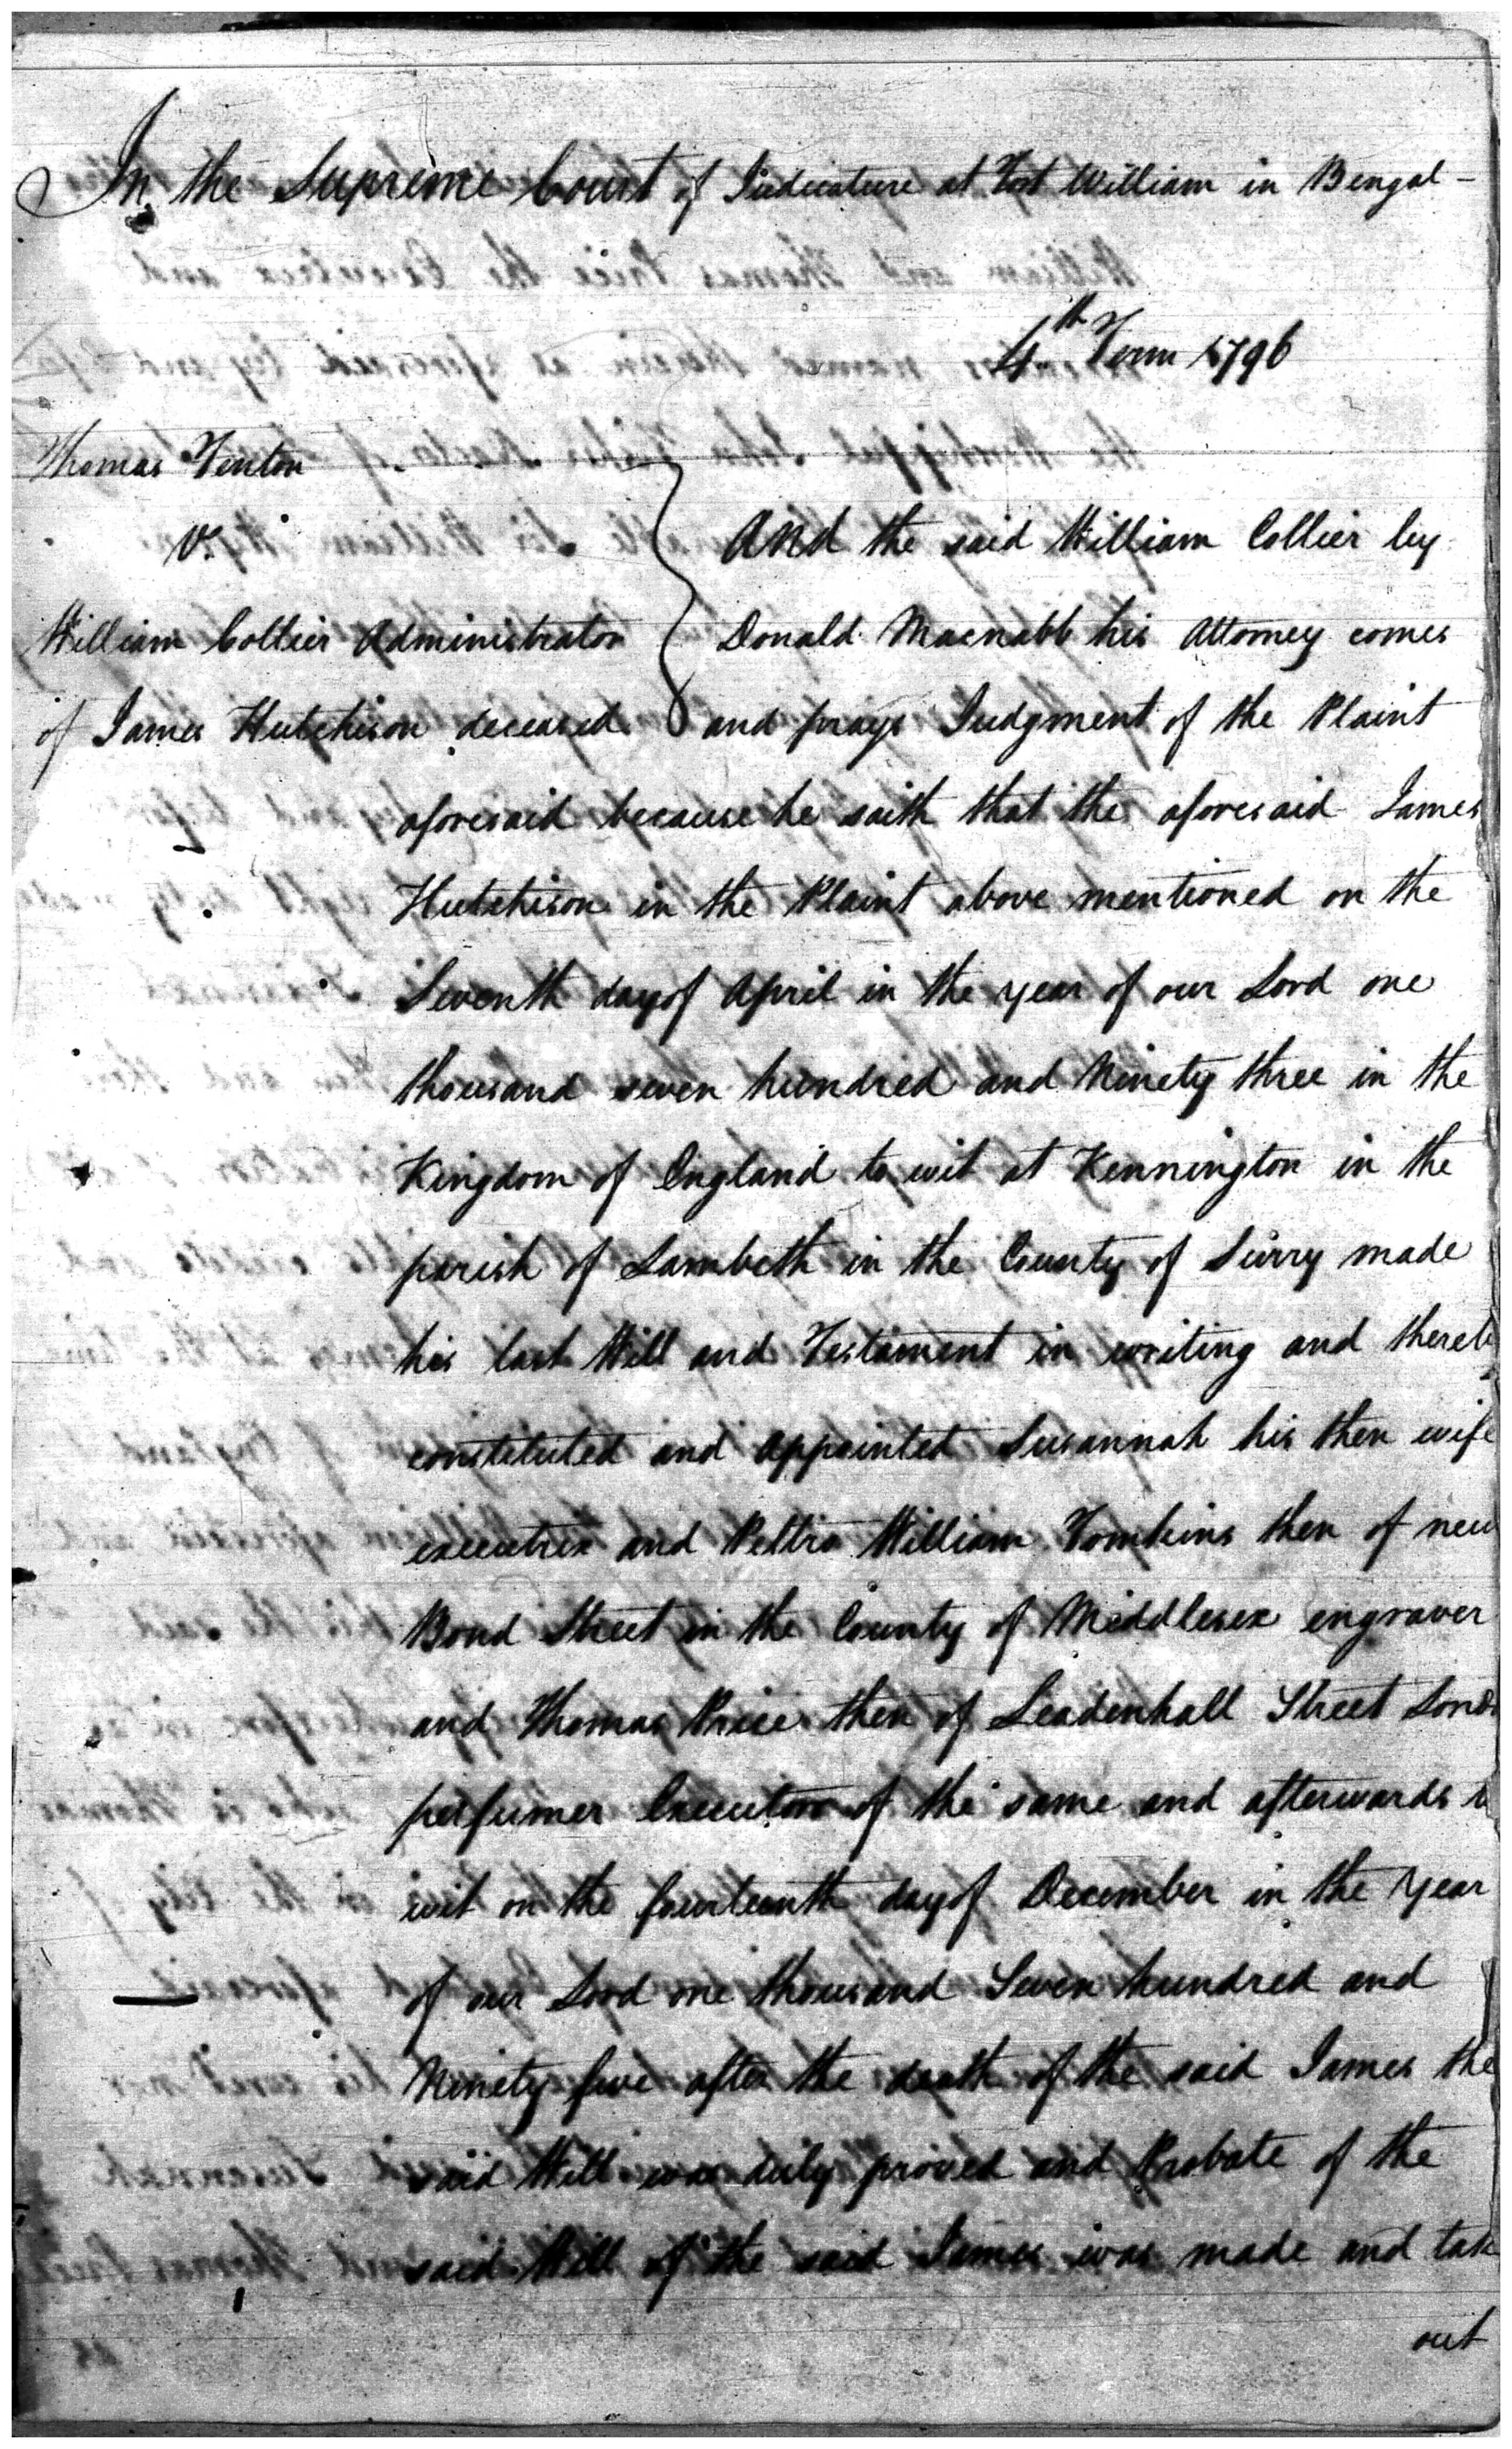 In the Supreme Court of Judicature at Fort William in Bengal -
4th Term 1796
Thomas Fenton
v.
William Collier Administrator
of James Hutchison deceased
And the said William Collier by
Donald Macnabb his Attorney comes
and prays Judgment of the Plaint
aforesaid because he saith that the aforesaid James
Hutchison in the Plaint above mentioned on the
Seventh day of April in the year of our Lord one
thousand seven hundred and Ninety three in the
Kingdom of England to wit at Kennington in the
parish of Lambeth in the County of Surry made
his last Will and Testament in writing and thereb
constituted and appointed Susannah his then wife
executrix and Peltro William Tomkins then of new
Bond Street in the County of Middlesex engraver
and Thomas Price then of Leadenhall Street Lond
perfumer Executors of the same and afterwards
wit on the fourteenth day of December in the Year
of our Lord one thousand Seven hundred and
Ninety five after the death of the said James the
said Will was duly proved and Probate of the
said Will of the said James was made and tak
out